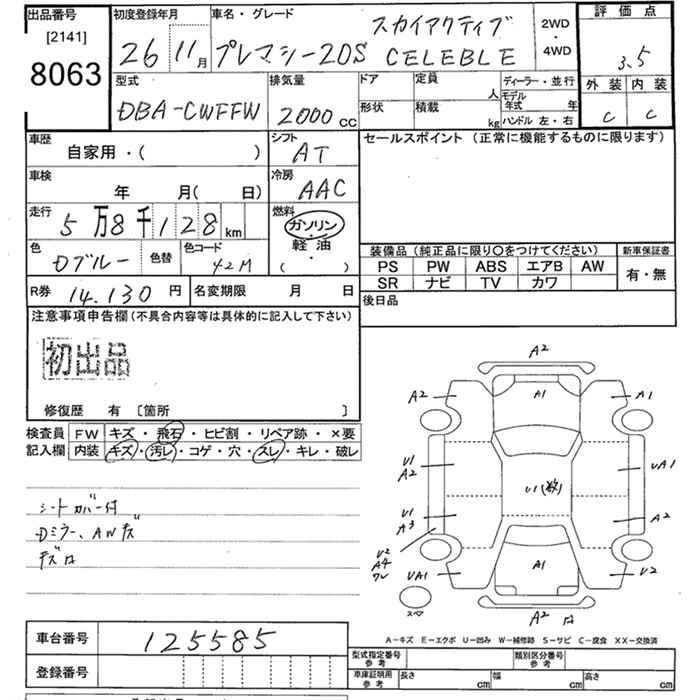 出品番号
[2141]
8063
初度登録年月
26 11月
車名・グレード
スカイアクティブ
プレマシー20S CELEBLE
2WD
・
4WD
評価点
3.5
外装 内装
C C
型式
DBA-CWFFW
排気量
2000cc
ドア 定員 人
形状 積載 kg
ディーラー・並行
モデル年式 年
ハンドル 左・右
車歴
自家用・( )
シフト
AT
車検
年 月( 日)
冷房
AAC
走行
5万8千128km
燃料
ガソリン
軽油
( )
色
Dブルー
色替
色コード
42M
R券 14.130円
名変期限 月 日
セールスポイント (正常に機能するものに限ります)
装備品 (純正品に限り〇をつけてください)
PS PW ABS エアB AW
SR ナビ TV カワ
新車保証書
有・無
後日品
注意事項申告欄(不具合内容等は具体的に記入して下さい)
初出品
修復歴 有 [箇所 ]
検査員記入欄
FW キズ・飛石・ヒビ割・リペア跡・×要
内装 キズ・汚レ・コゲ・穴・スレ・キレ・破レ
シートカバー付
Dミラー、AWキズ
A2
A2 A1 A1
U1 A2
U1(数)
UA1
U1 A3
A2
U2 A4 ワレ
UA1 A1 U2
スペア
A2
A-キズ E-エクボ U-凹み W-補修跡 S-サビ C-腐食 XX-交換済
車台番号 125585
登録番号
型式指定番号 参考
類別区分番号 参考
車庫証明用 参考
長さ cm
幅 cm
高さ cm